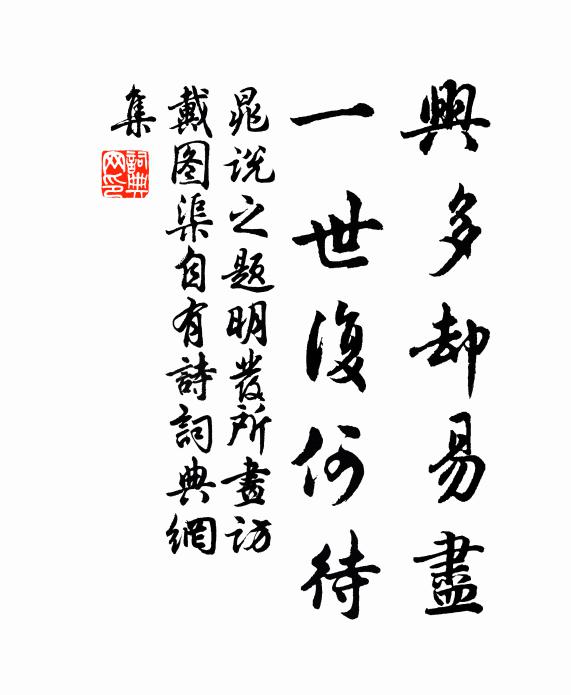 興多却易盡
一世復何待
晁説之題明發所畫訪
戴图渠自有詩詞典網
集
詞典网印